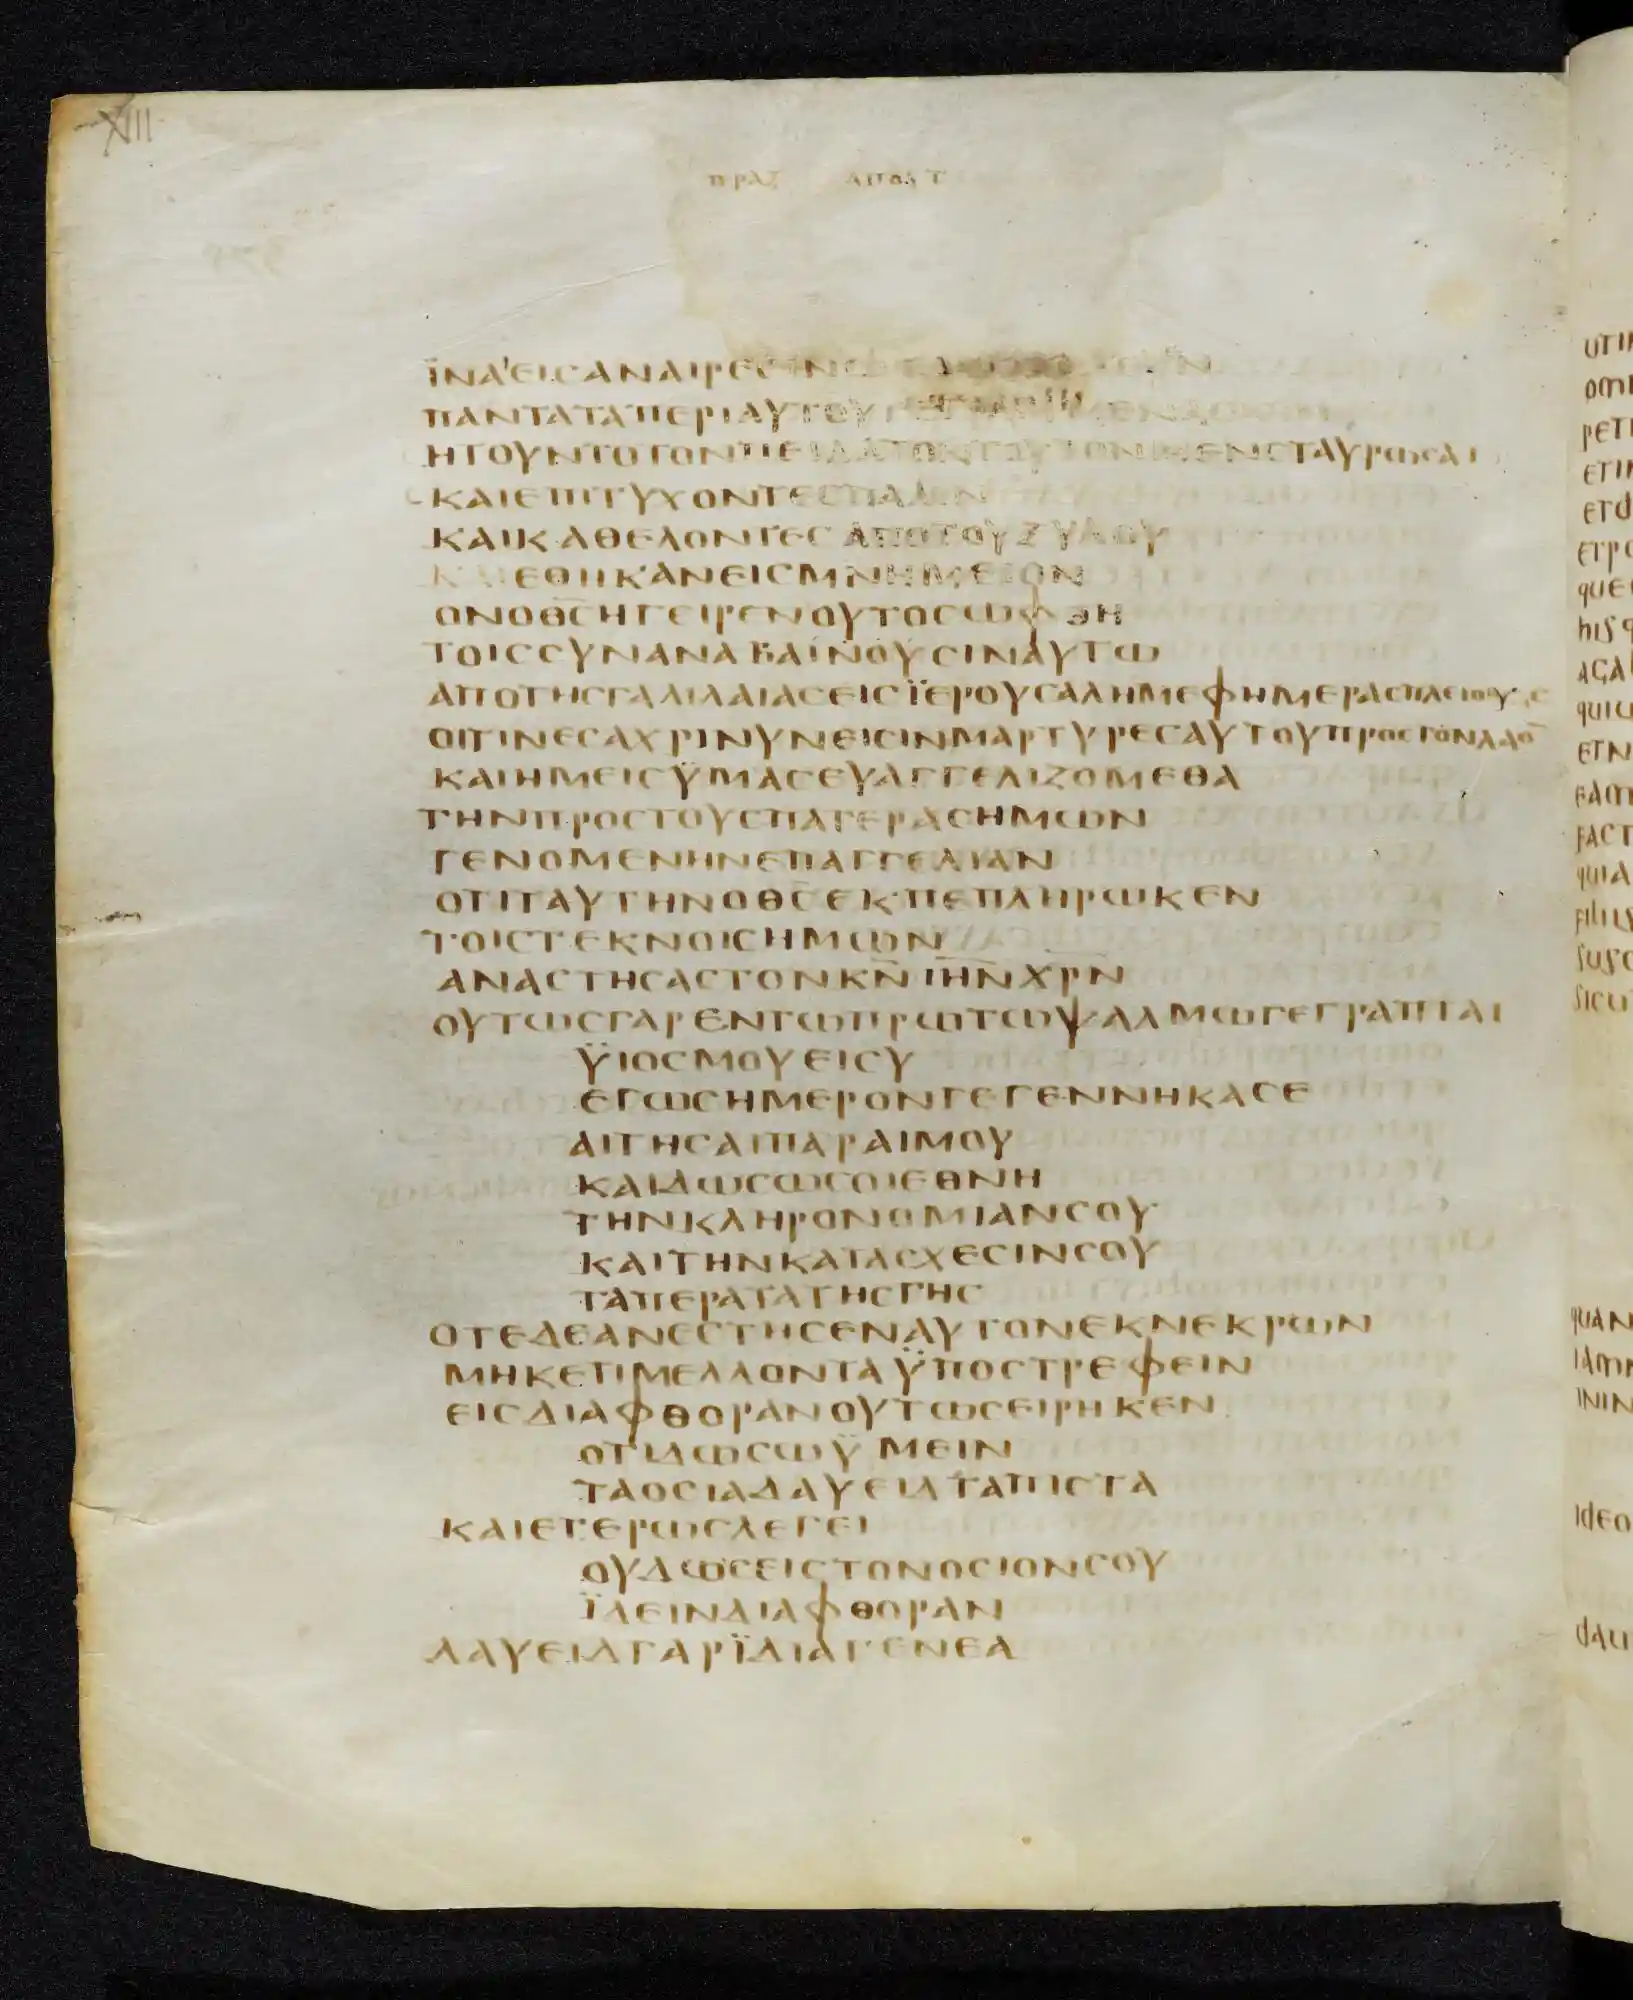 XIII
ΠΡΑΞ ΑΠΟΣΤ
ΪΝΑ'ΕΙCΑΝΑΙΡΕCΙΝ
ΠΑΝΤΑΤΑΠΕΡΙΑΥΤΟΥ
ΗΤΟΥΝΤΟΤΟΝΠΕΙΛΑΤΟΝΤΟΥΤΟΝΜΕΝCΤΑΥΡΩCΑΙ
ΚΑΙΕΠΙΤΥΧΟΝΤΕCΠΑΛΙΝ
ΚΑΙΚΑΘΕΛΟΝΤΕCΑΠΟΤΟΥΞΥΛΟΥ
ΚΑΙΕΘΗΚΑΝΕΙCΜΝΗΜΕΙΟΝ
ΟΝΟΘ̅C̅ΗΓΕΙΡΕΝΟΥΤΟCΩΦΘΗ
ΤΟΙCCΥΝΑΝΑΒΑΙΝΟΥCΙΝΑΥΤΩ
ΑΠΟΤΗCΓΑΛΙΛΑΙΑCΕΙCΪΕΡΟΥCΑΛΗΜΕΦΗΜΕΡΑCΠΛΕΙΟΥC
ΟΙΤΙΝΕCΑΧΡΙΝΥΝΕΙCΙΝΜΑΡΤΥΡΕCΑΥΤΟΥΠΡΟCΤΟΝΛΑΟ̅
ΚΑΙΗΜΕΙCΫΜΑCΕΥΑΓΓΕΛΙΖΟΜΕΘΑ
ΤΗΝΠΡΟCΤΟΥCΠΑΤΕΡΑCΗΜΩΝ
ΓΕΝΟΜΕΝΗΝΕΠΑΓΓΕΛΙΑΝ
ΟΤΙΤΑΥΤΗΝΟΘ̅C̅ΕΚΠΕΠΛΗΡΩΚΕΝ
ΤΟΙCΤΕΚΝΟΙCΗΜΩΝ
ΑΝΑCΤΗCΑCΤΟΝΚ̅Ν̅Ι̅Η̅Ν̅Χ̅Ρ̅Ν̅
ΟΥΤΩCΓΑΡΕΝΤΩΠΡΩΤΩΨΑΛΜΩΓΕΓΡΑΠΤΑΙ
ΫΙΟCΜΟΥΕΙCΥ
ΕΓΩCΗΜΕΡΟΝΓΕΓΕΝΝΗΚΑCΕ
ΑΙΤΗCΑΙΠΑΡΑΙΜΟΥ
ΚΑΙΔΩCΩCΟΙΕΘΝΗ
ΤΗΝΚΛΗΡΟΝΟΜΙΑΝCΟΥ
ΚΑΙΤΗΝΚΑΤΑCΧΕCΙΝCΟΥ
ΤΑΠΕΡΑΤΑΤΗCΓΗC
ΟΤΕΔΕΑΝΕCΤΗCΕΝΑΥΤΟΝΕΚΝΕΚΡΩΝ
ΜΗΚΕΤΙΜΕΛΛΟΝΤΑΫΠΟCΤΡΕΦΕΙΝ
ΕΙCΔΙΑΦΘΟΡΑΝΟΥΤΩCΕΙΡΗΚΕΝ
ΟΤΙΔΩCΩΫΜΕΙΝ
ΤΑΟCΙΑΔΑΥΕΙΔΤΑΠΙCΤΑ
ΚΑΙΕΤΕΡΩCΛΕΓΕΙ
ΟΥΔΩCΕΙCΤΟΝΟCΙΟΝCΟΥ
ΪΔΕΙΝΔΙΑΦΘΟΡΑΝ
ΔΑΥΕΙΔΓΑΡΪΔΙΑΓΕΝΕΑ